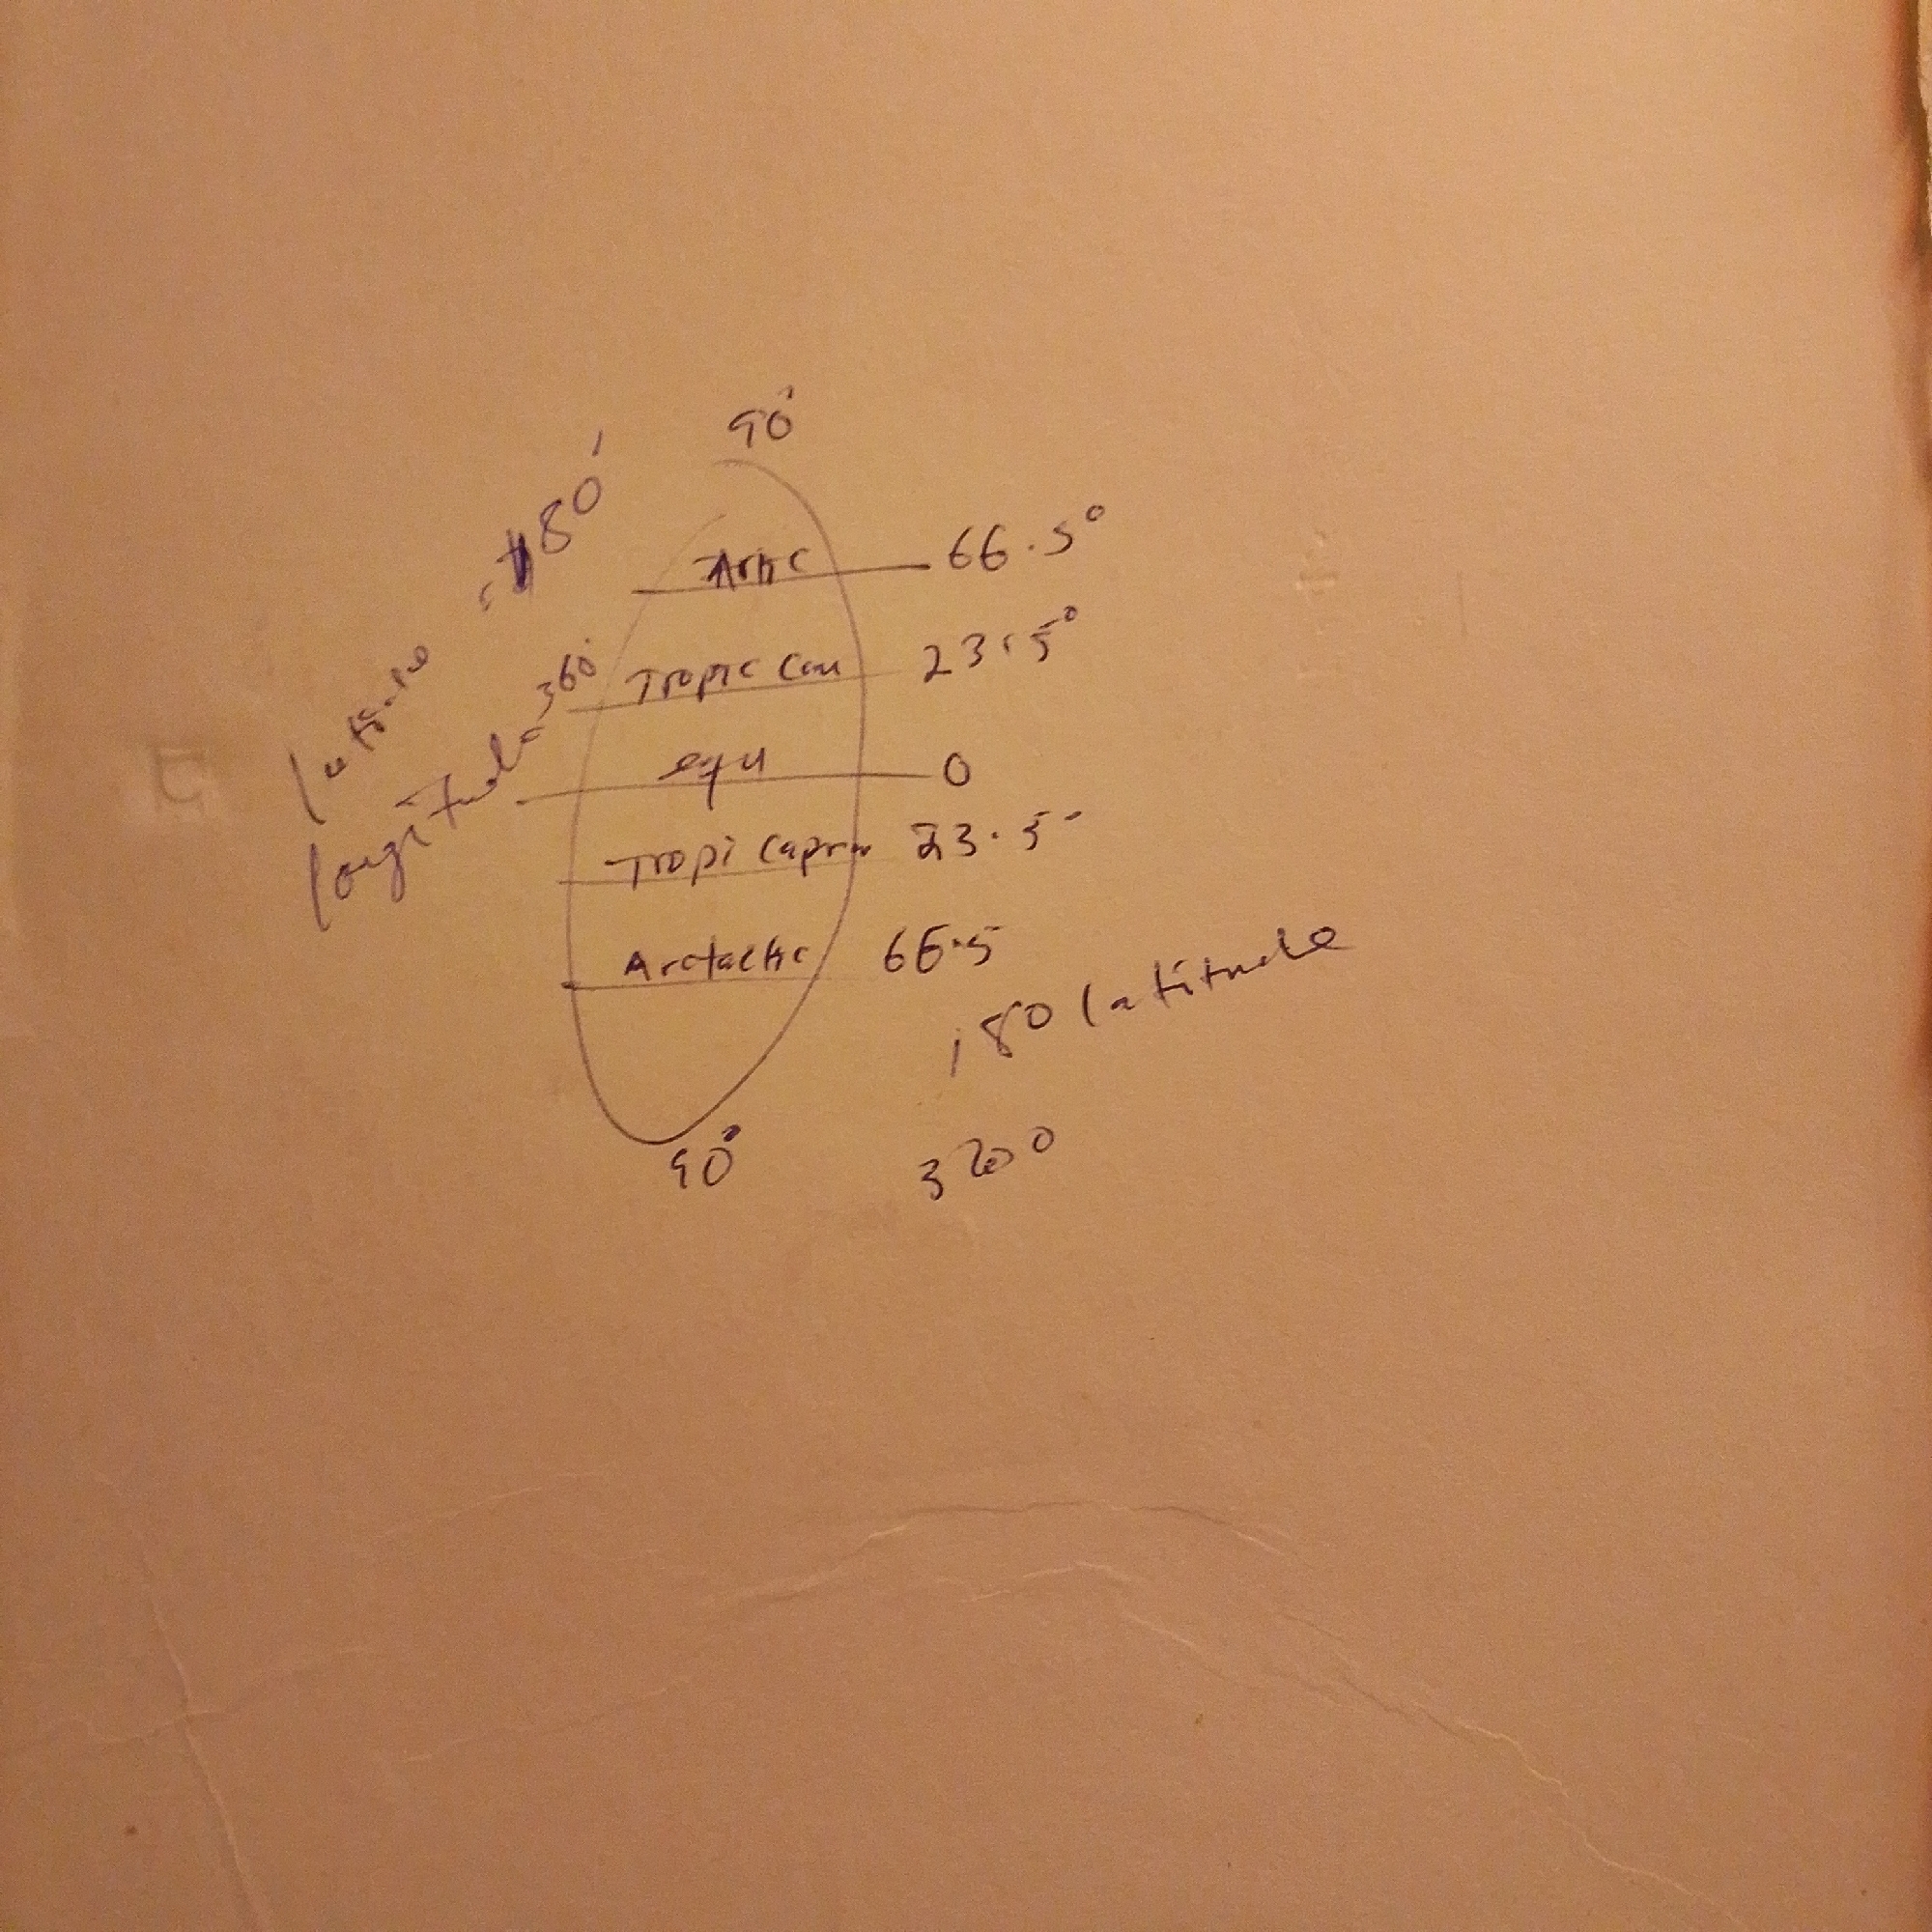 90°
Artic 66.5°
Tropic Can 23.5°
equ 0
Tropi Capron 23.5°
Arctactic 66.5
90°
latitude = 180°
longitude = 360°
180 latitude